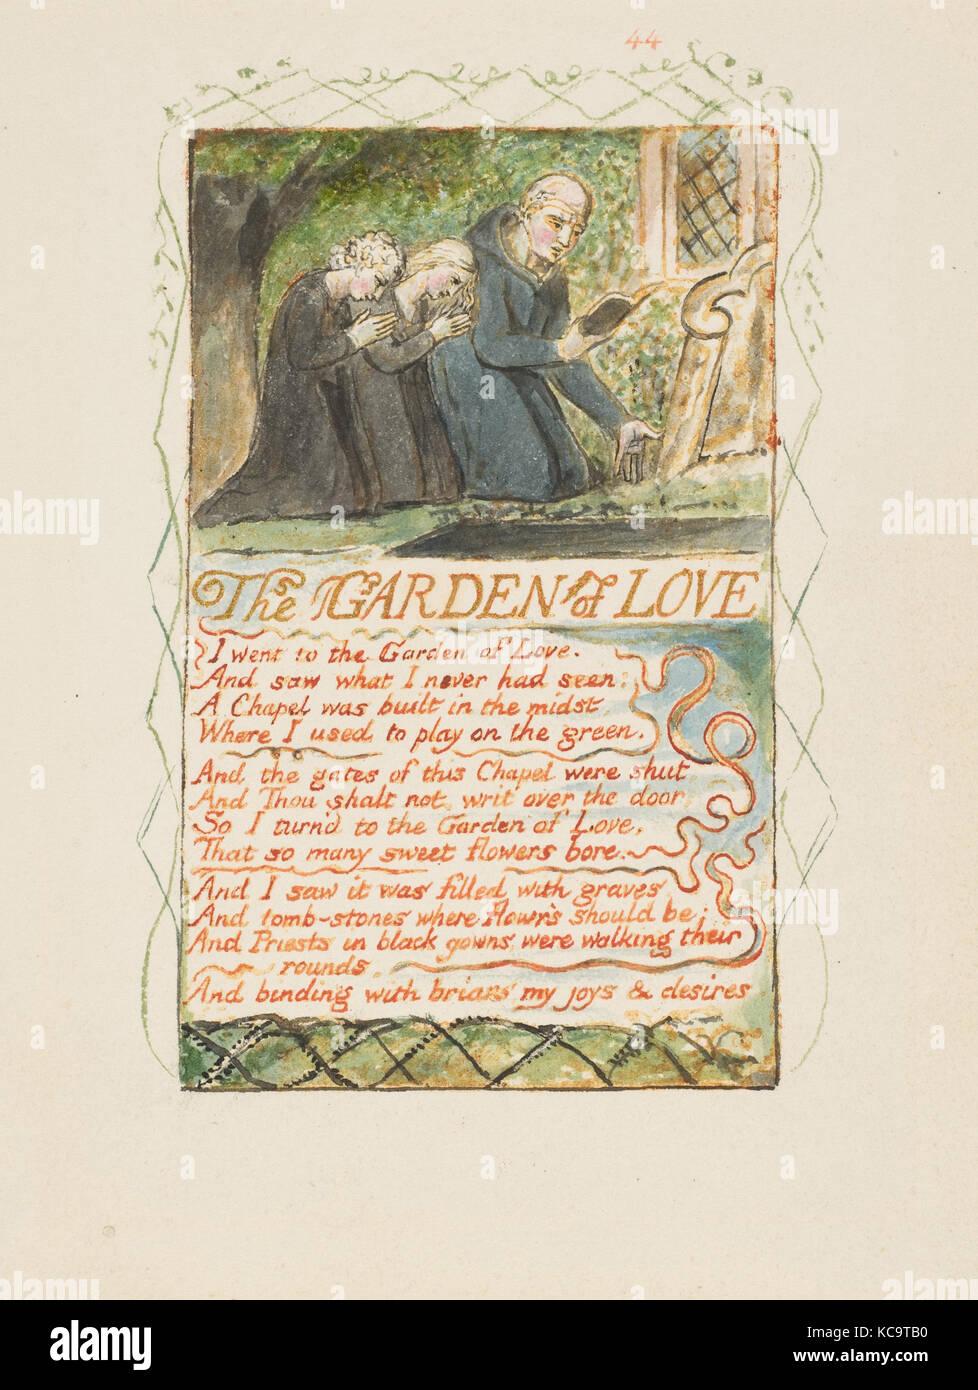 44
The GARDEN of LOVE
I went to the Garden of Love.
And saw what I never had seen:
A Chapel was built in the midst,
Where I used to play on the green.
And the gates of this Chapel were shut
And Thou shalt not, writ over the door;
So I turn'd to the Garden of Love,
That so many sweet flowers bore.
And I saw it was filled with graves,
And tomb-stones where flow'rs should be;
And Priests in black gowns, were walking their
rounds,
And binding with briars my joys & desires
a alamy stock photo
alamy
Image ID: KC9TB0
www.alamy.com